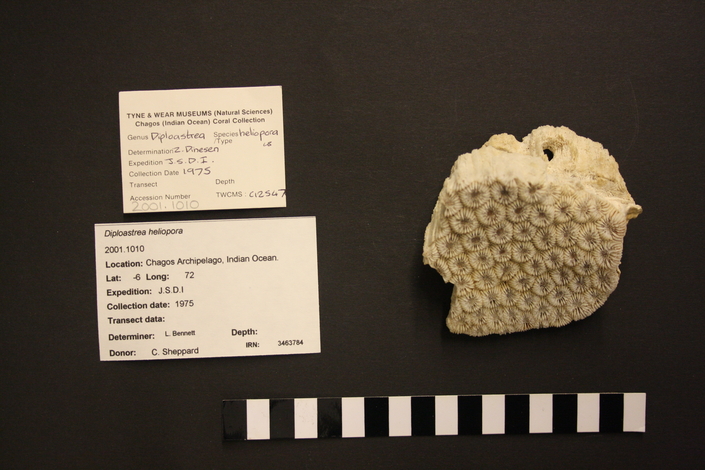 TYNE & WEAR MUSEUMS (Natural Sciences)
Chagos (Indian Ocean) Coral Collection
Genus Diploastrea Species heliopora
/Type
Determination Z. Dinesen
Expedition J.S.D.I.
Collection Date 1975
Transect Depth
Accession Number TWCMS : C12567
2001.1010
Diploastrea heliopora
2001.1010
Location: Chagos Archipelago, Indian Ocean.
Lat: -6 Long: 72
Expedition: J.S.D.I
Collection date: 1975
Transect data:
Determiner: L. Bennett Depth:
Donor: C. Sheppard IRN: 3463784